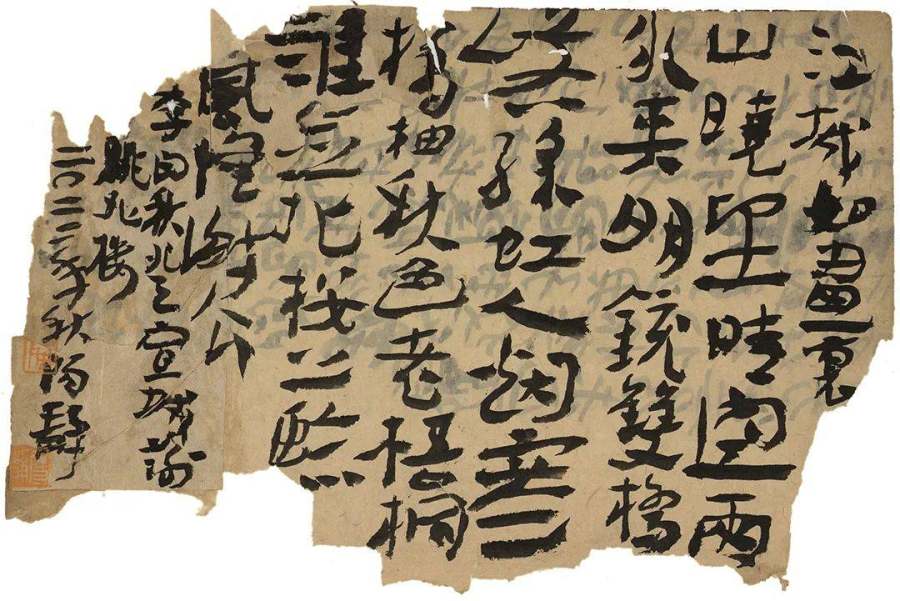 江城如畫裏
山曉望晴空兩
水夾明鏡雙橋
落彩虹人烟寒
橘柚秋色老梧桐
誰念北樓上臨
風懷謝公
李白秋登宣城謝
朓北樓
二〇二二年秋